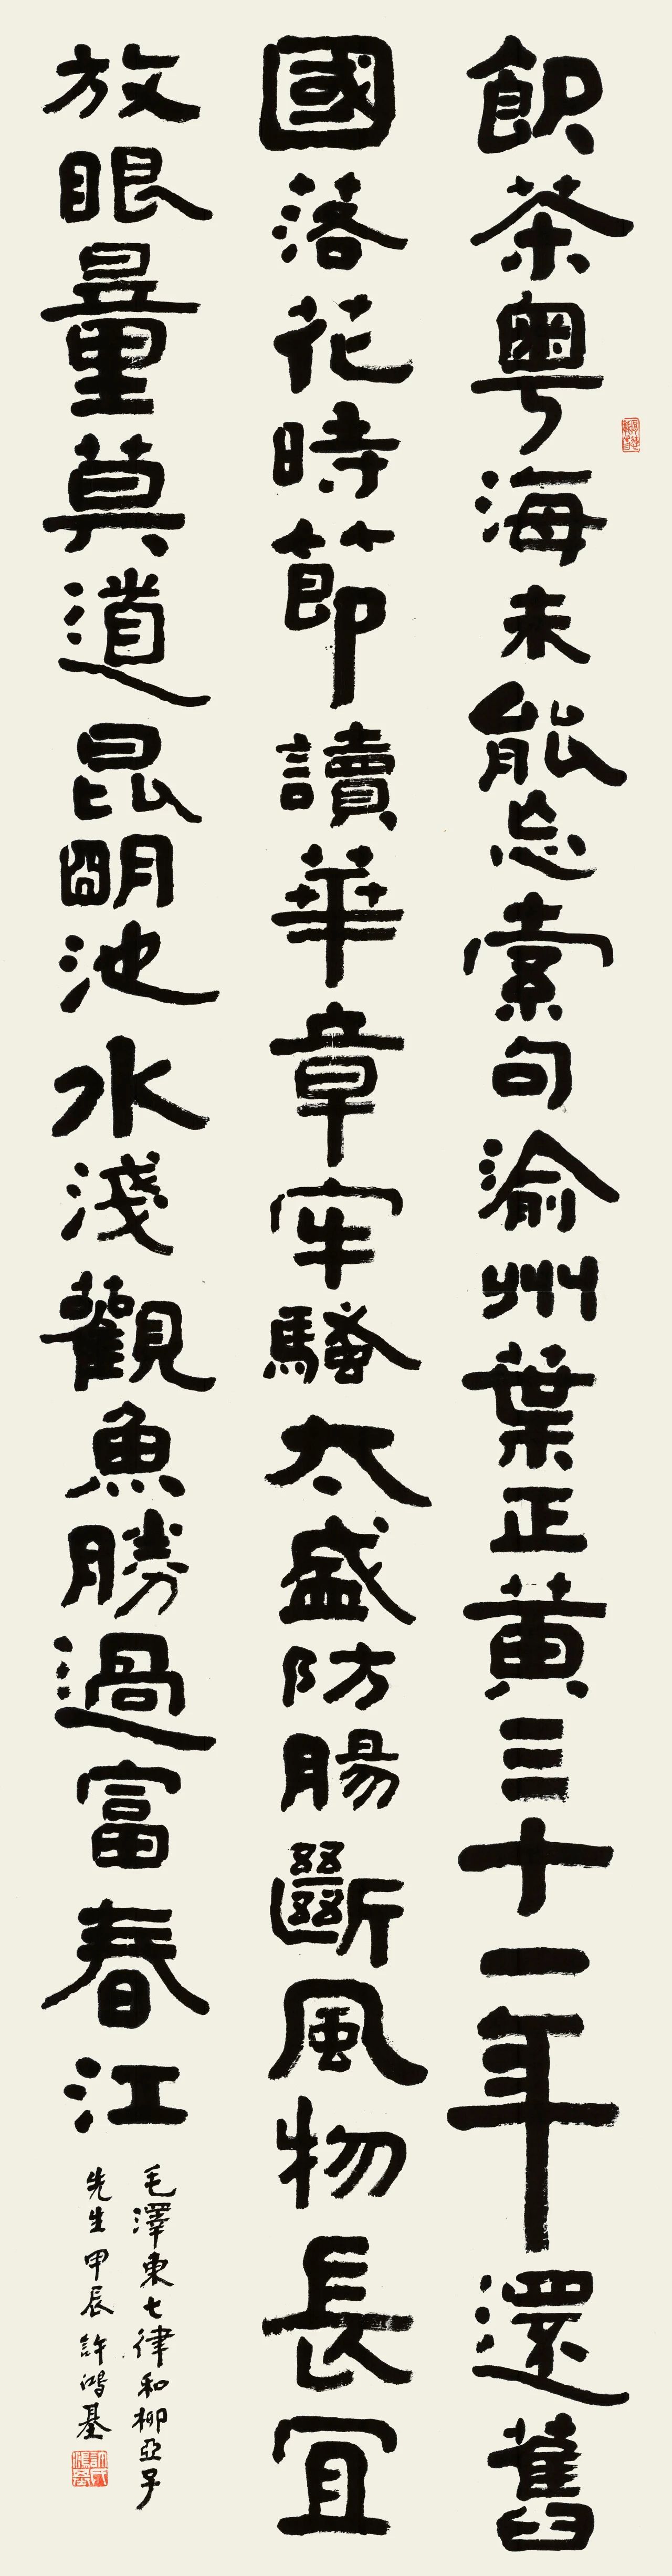 飲茶粵海未能忘索句渝州葉正黄三十一年還舊
國落花時節讀華章牢騷太盛防腸斷風物長宜
放眼量莫道昆明池水淺觀魚勝過富春江
毛澤東七律和柳亞子
先生甲辰許鴻基